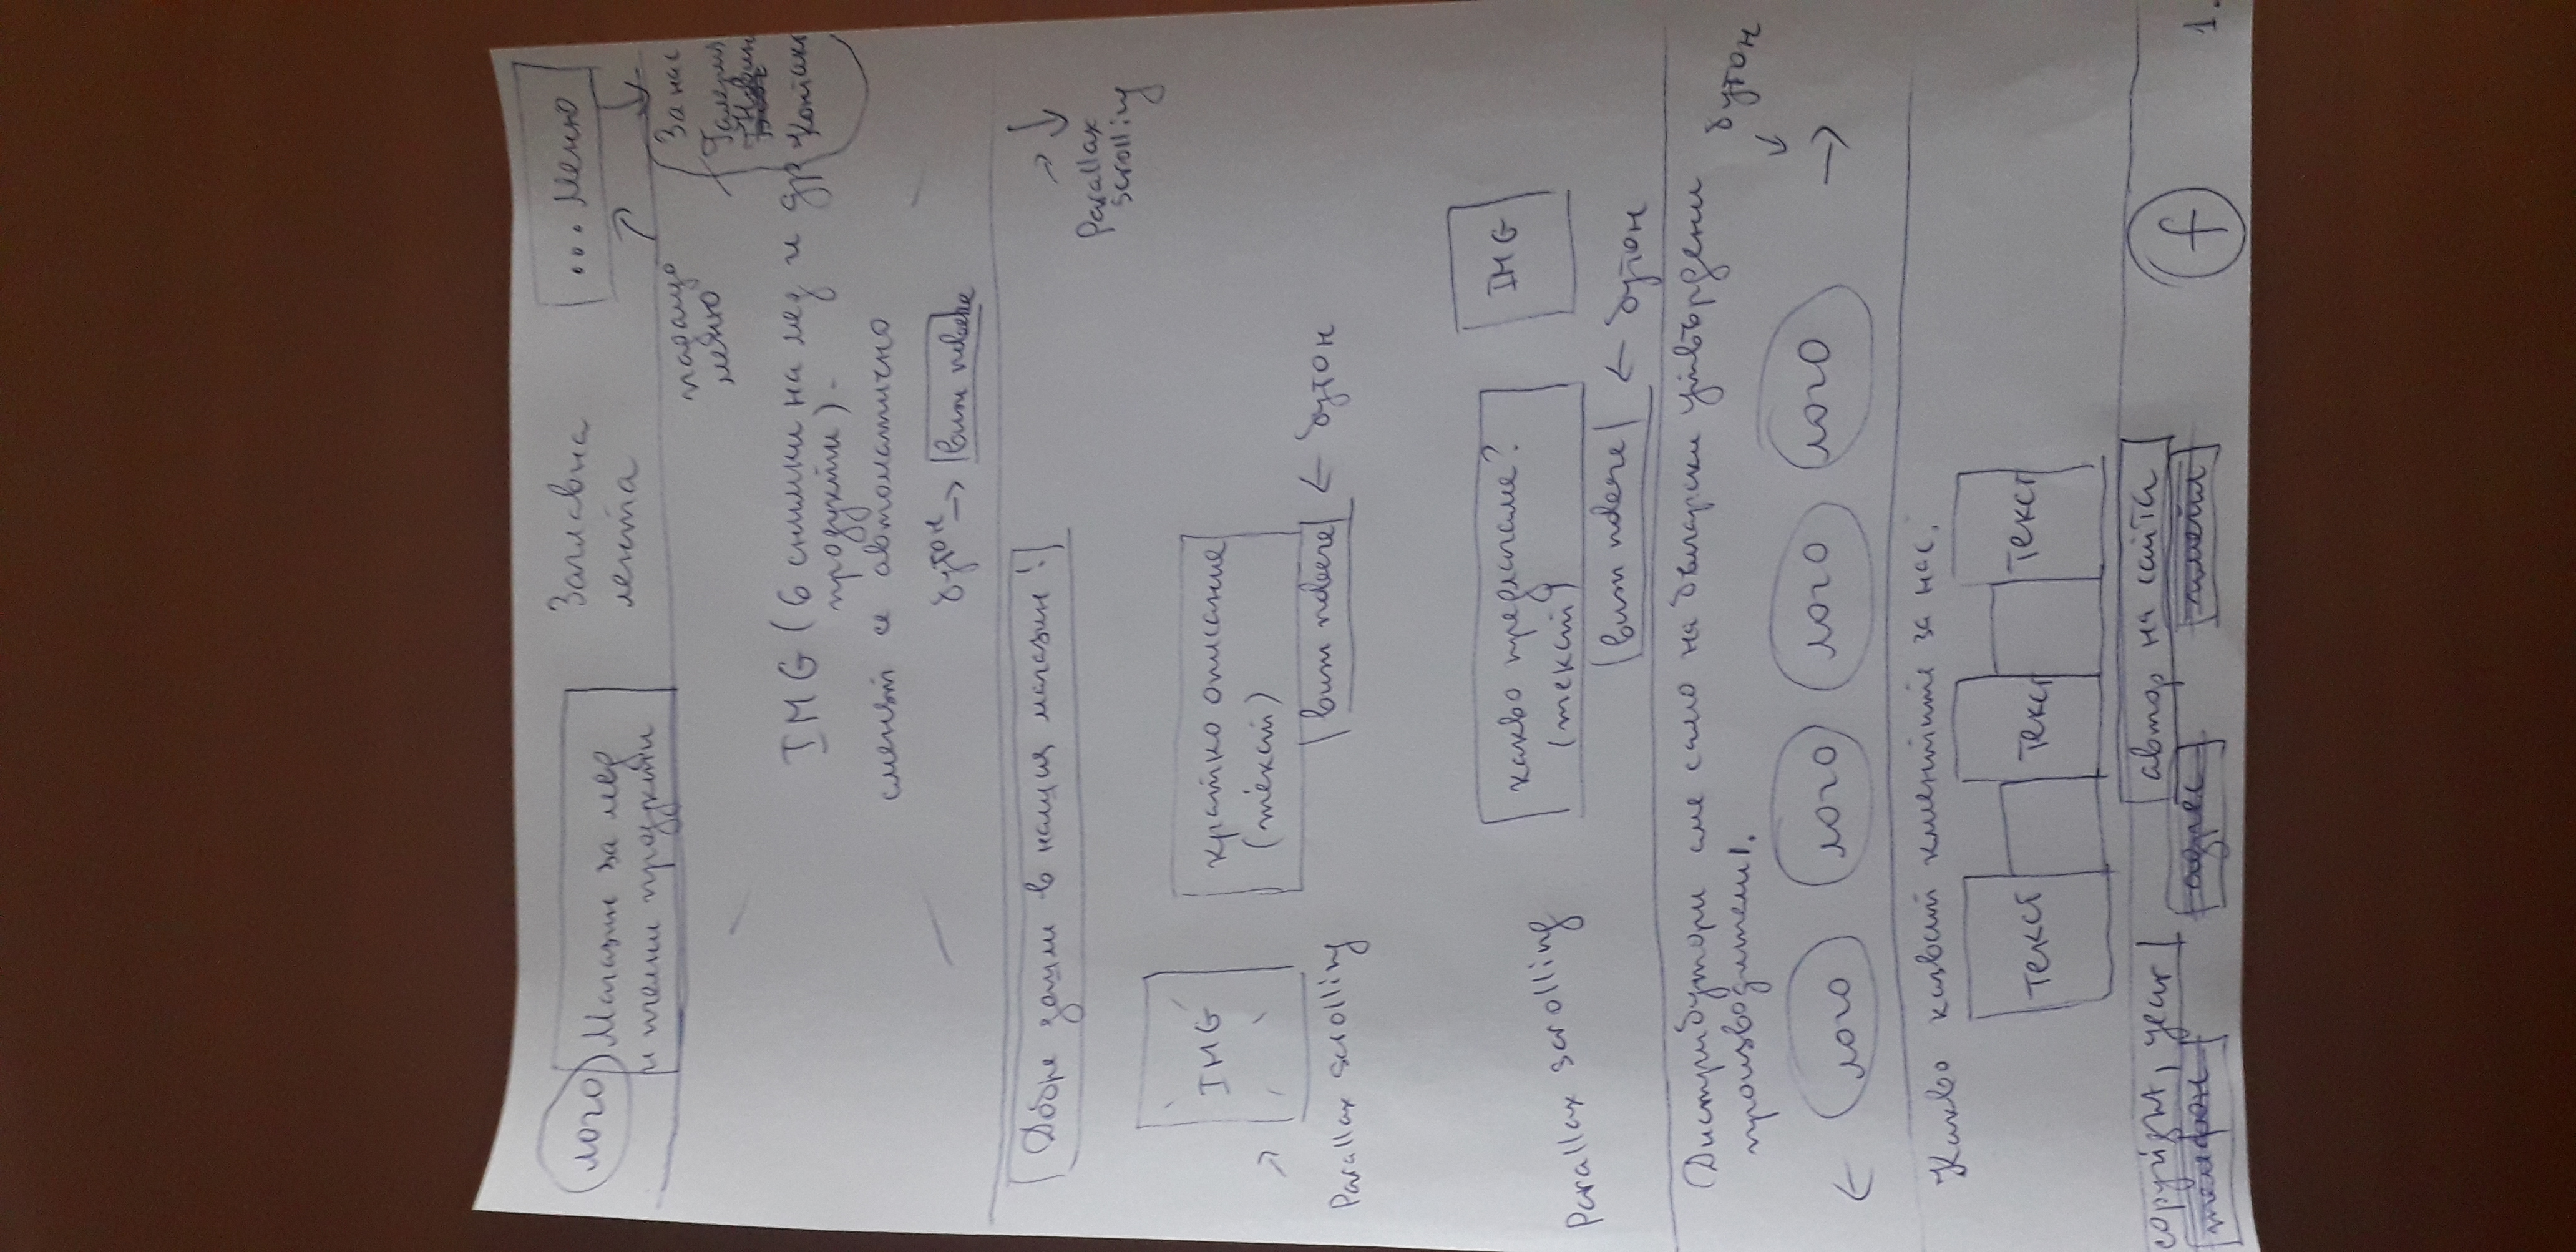 лого
Магазин за мед
и пчелни продукти
Заглавна
лента
... Меню
падащо
меню
За нас
Галерия
Новин
Контакт
IMG (6 снимки на мед и др
продукти) -
сменят се автоматично
бутон → виж повече
Добре дошли в нашия магазин!
Parallax
scrolling
IMG
кратко описание
(текст)
Parallax scrolling
виж повече ← бутон
какво предлагаме?
(текст)
IMG
Parallax scrolling
виж повече ← бутон
Дистрибутори сме само на български утвърдени
производители.
бутон
← лого лого лого лого →
Какво казват клиентите за нас.
текст текст текст
copyright, year
автор на сайта
телефон адрес имейл
f
1.